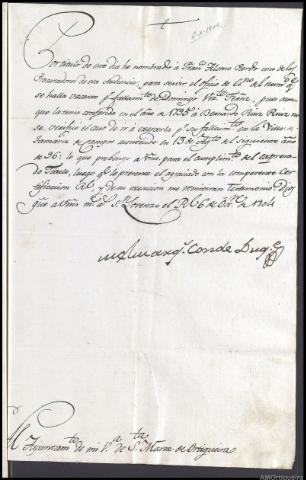 Por titulo de este dia he nombrado à Fran.co Alonso Pardo uno de los
Procuradores de esa Audiencia, para servir el oficio de Es.no del num.o q.e
se halla vacante p.r fallecim.to de Domingo Fran.z, pues aun-
que la tenia conferida en el año de 1795 à Bernardo Ruiz Perez no
se verificó el caso de ir à exercerla p.r su fallecim.to en la Villa de
Tamariz de campos acontecido en 13 de Ag.to del siguiente año
de 96: lo que prevengo à Vms. para el cumplim.to del expresa-
do Titulo, luego q.e lo presente el agraciado con la competente Cer-
tificacion R.l; y de su execucion me remitiran Testimonio. Dios
gue à Vms. m.s a.s S.n Lorenzo el R.l 6 de Oct.re de 1804
Conde Duq.e
Ayuntam.to de mi V.a de S.ta Marta de Ortigueira
AMOrtigueira